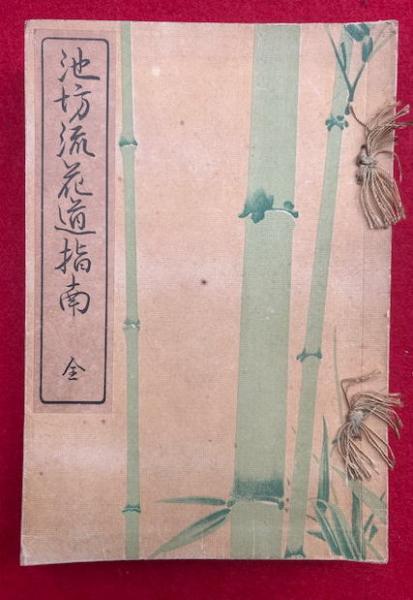 池坊流花道指南 全